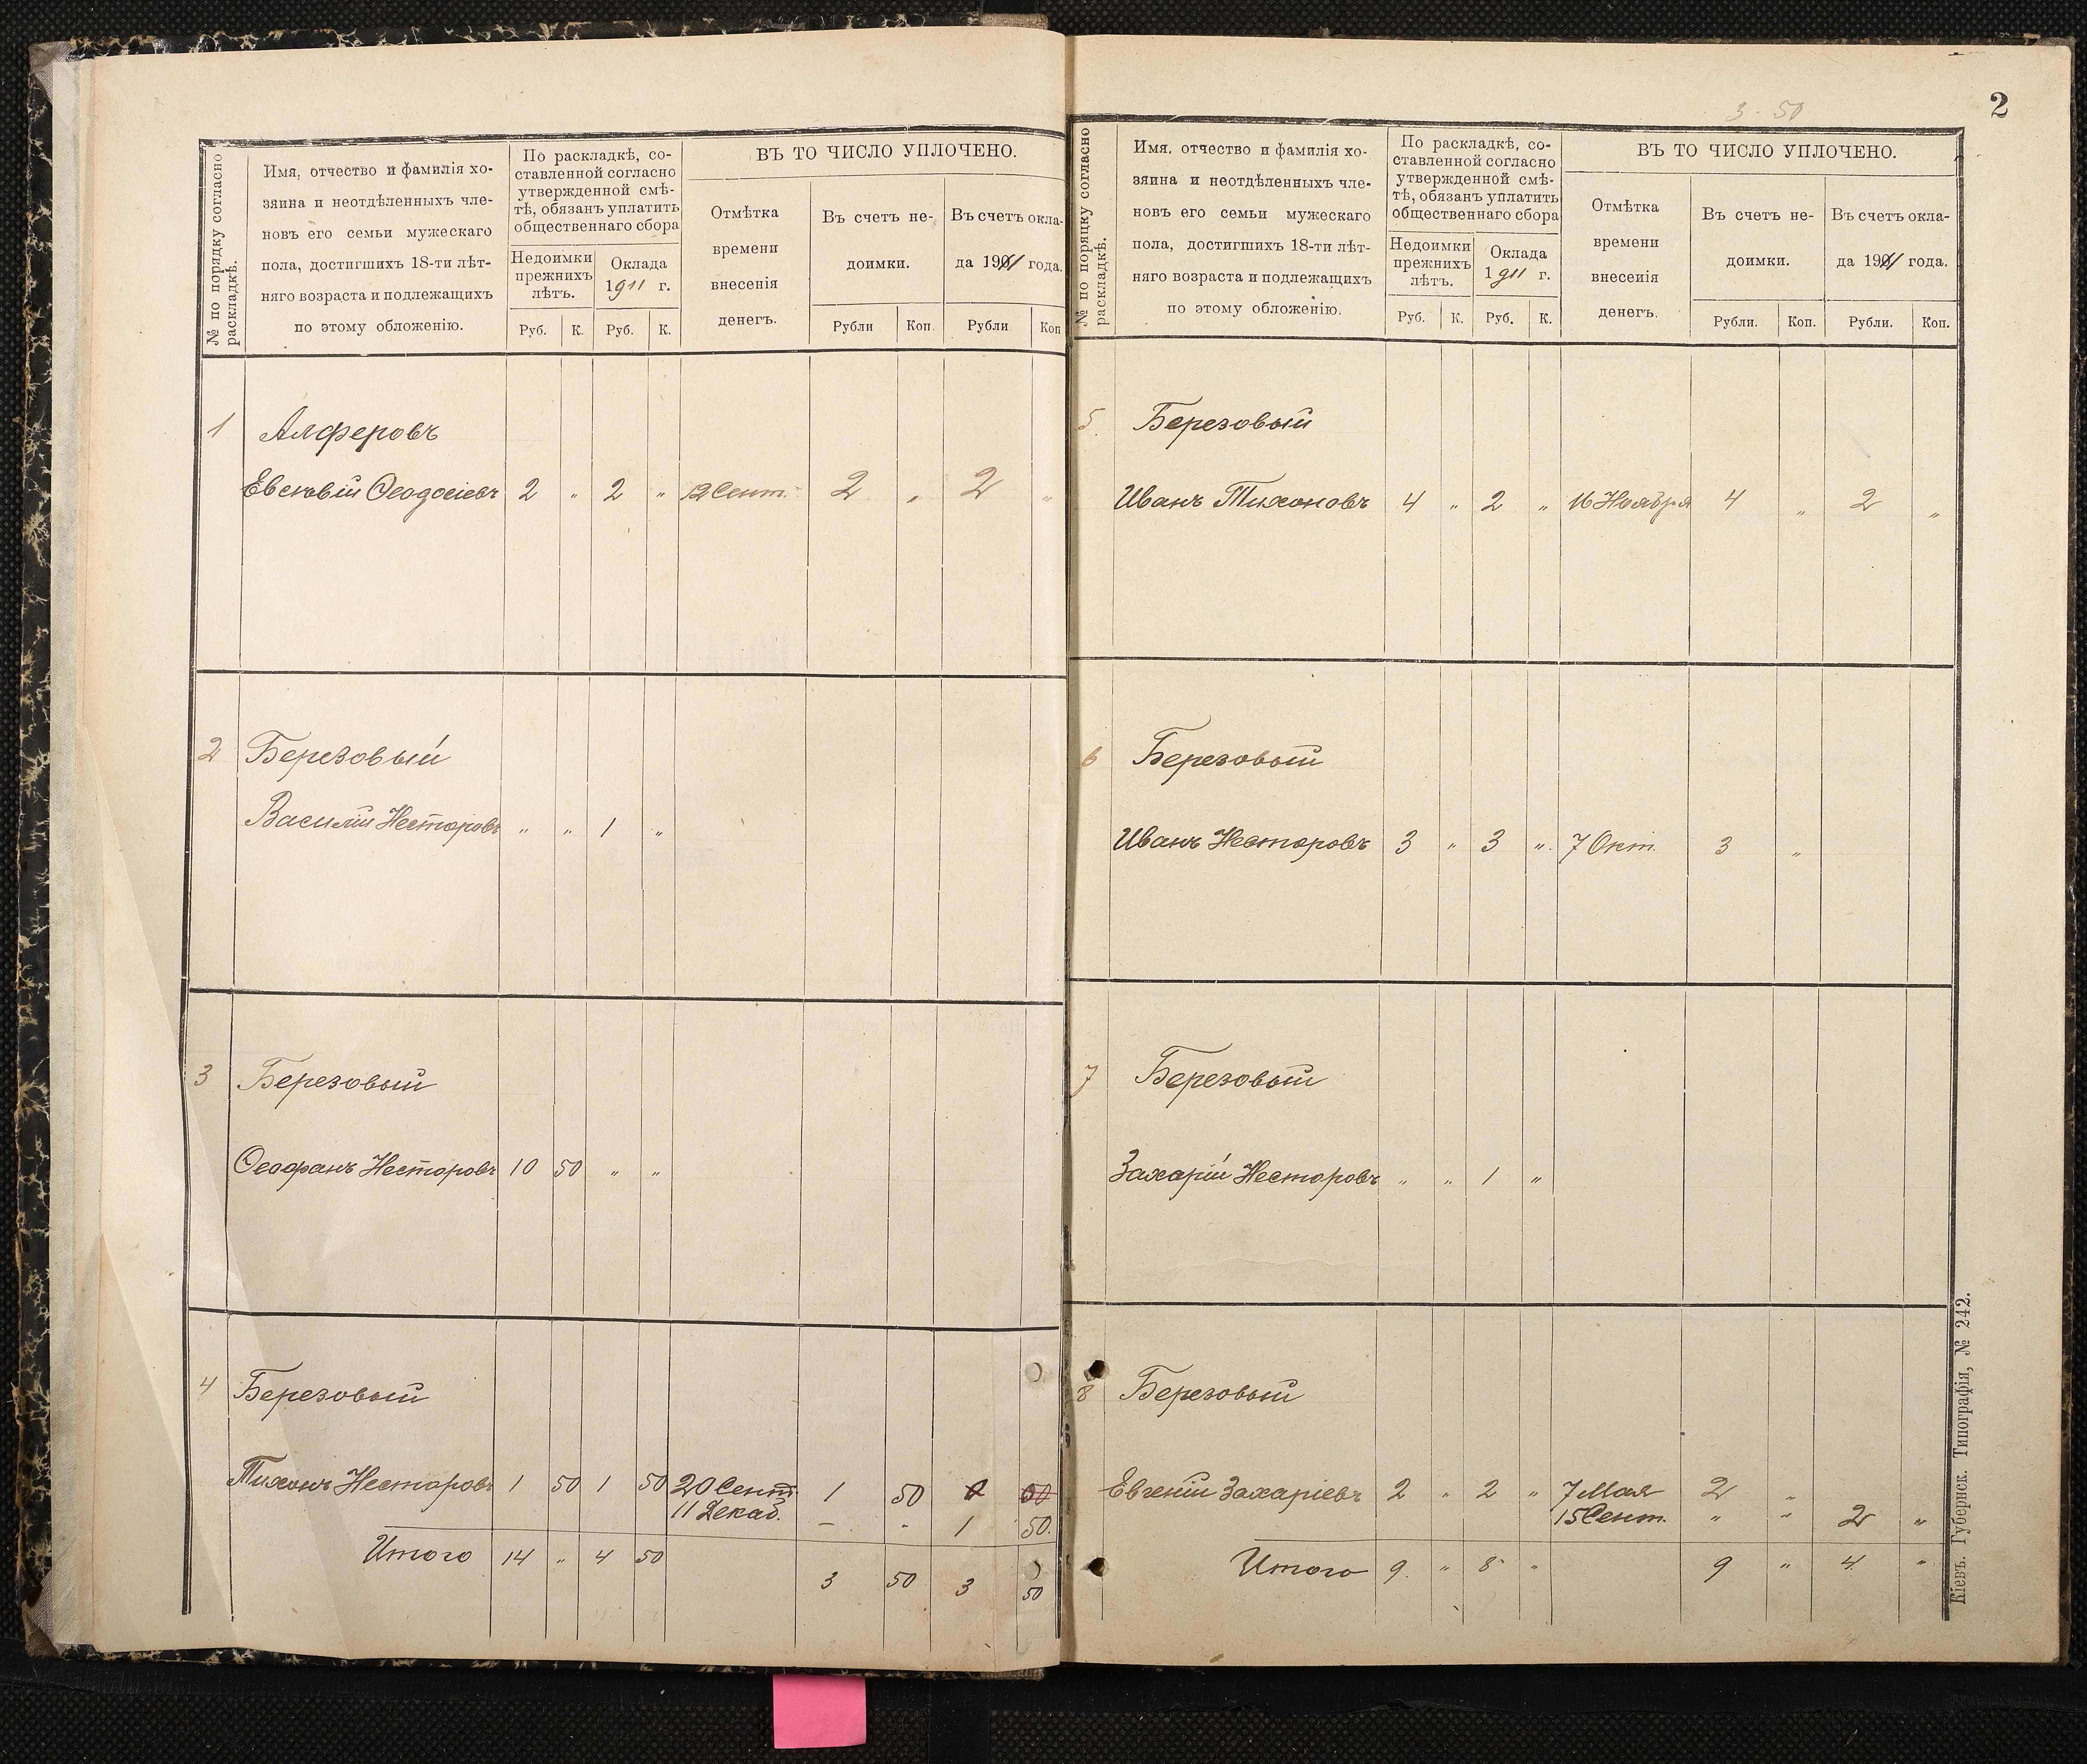 № по порядку согласно
раскладкѣ.
Имя, отчество и фамилія хо-
зяина и неотдѣленныхъ чле-
новъ его семьи мужескаго
пола, достигшихъ 18-ти лѣт-
няго возраста и подлежащихъ
по этому обложенію.
По раскладкѣ, со-
ставленной согласно
утвержденной смѣ-
тѣ, обязанъ уплатить
общественнаго сбора
Недоимки
прежнихъ
лѣтъ.
Оклада
1911 г.
Руб. К. Руб. К.
ВЪ ТО ЧИСЛО УПЛОЧЕНО.
Отмѣтка
времени
внесенія
денегъ.
Въ счетъ не-
доимки.
Въ счетъ окла-
да 1911 года.
Рубли Коп. Рубли Коп
1 Алферовъ
Евсевій Ѳеодосіевъ 2 „ 2 „ 12 Сент. 2 „ 2 „
2 Березовый
Василій Несторовъ „ „ 1 „
3 Березовый
Ѳеофанъ Несторовъ 10 50 „ „
4 Березовый
Тихонъ Несторовъ 1 50 1 50 20 Сент. 1 50
11 Декаб. – - 1 50.
Итого 14 „ 4 50
3 50 3 50
3 50
2
№ по порядку согласно
раскладкѣ.
Имя, отчество и фамилія хо-
зяина и неотдѣленныхъ чле-
новъ его семьи мужескаго
пола, достигшихъ 18-ти лѣт-
няго возраста и подлежащихъ
по этому обложенію.
По раскладкѣ, со-
ставленной согласно
утвержденной смѣ-
тѣ, обязанъ уплатить
общественнаго сбора
Недоимки
прежнихъ
лѣтъ.
Оклада
1911 г.
Руб. К. Руб. К.
ВЪ ТО ЧИСЛО УПЛОЧЕНО.
Отмѣтка
времени
внесенія
денегъ.
Въ счетъ не-
доимки.
Въ счетъ окла-
да 1911 года.
Рубли. Коп. Рубли. Коп.
5. Березовый
Иванъ Тихоновъ 4 „ 2 „ 16 Ноября 4 „ 2 „
6 Березовый
Иванъ Несторовъ 3 „ 3 „ 7 Окт. 3 „
7 Березовый
Захарій Несторовъ „ „ 1 „
8 Березовый
Евгеній Захаріевъ 2 „ 2 „ 7 Мая 2 „
15 Сент. „ „ 2 „
Итого 9. „ 8 „ 9 „ 4. „
Кіевъ. Губернск. Типографія, № 242.